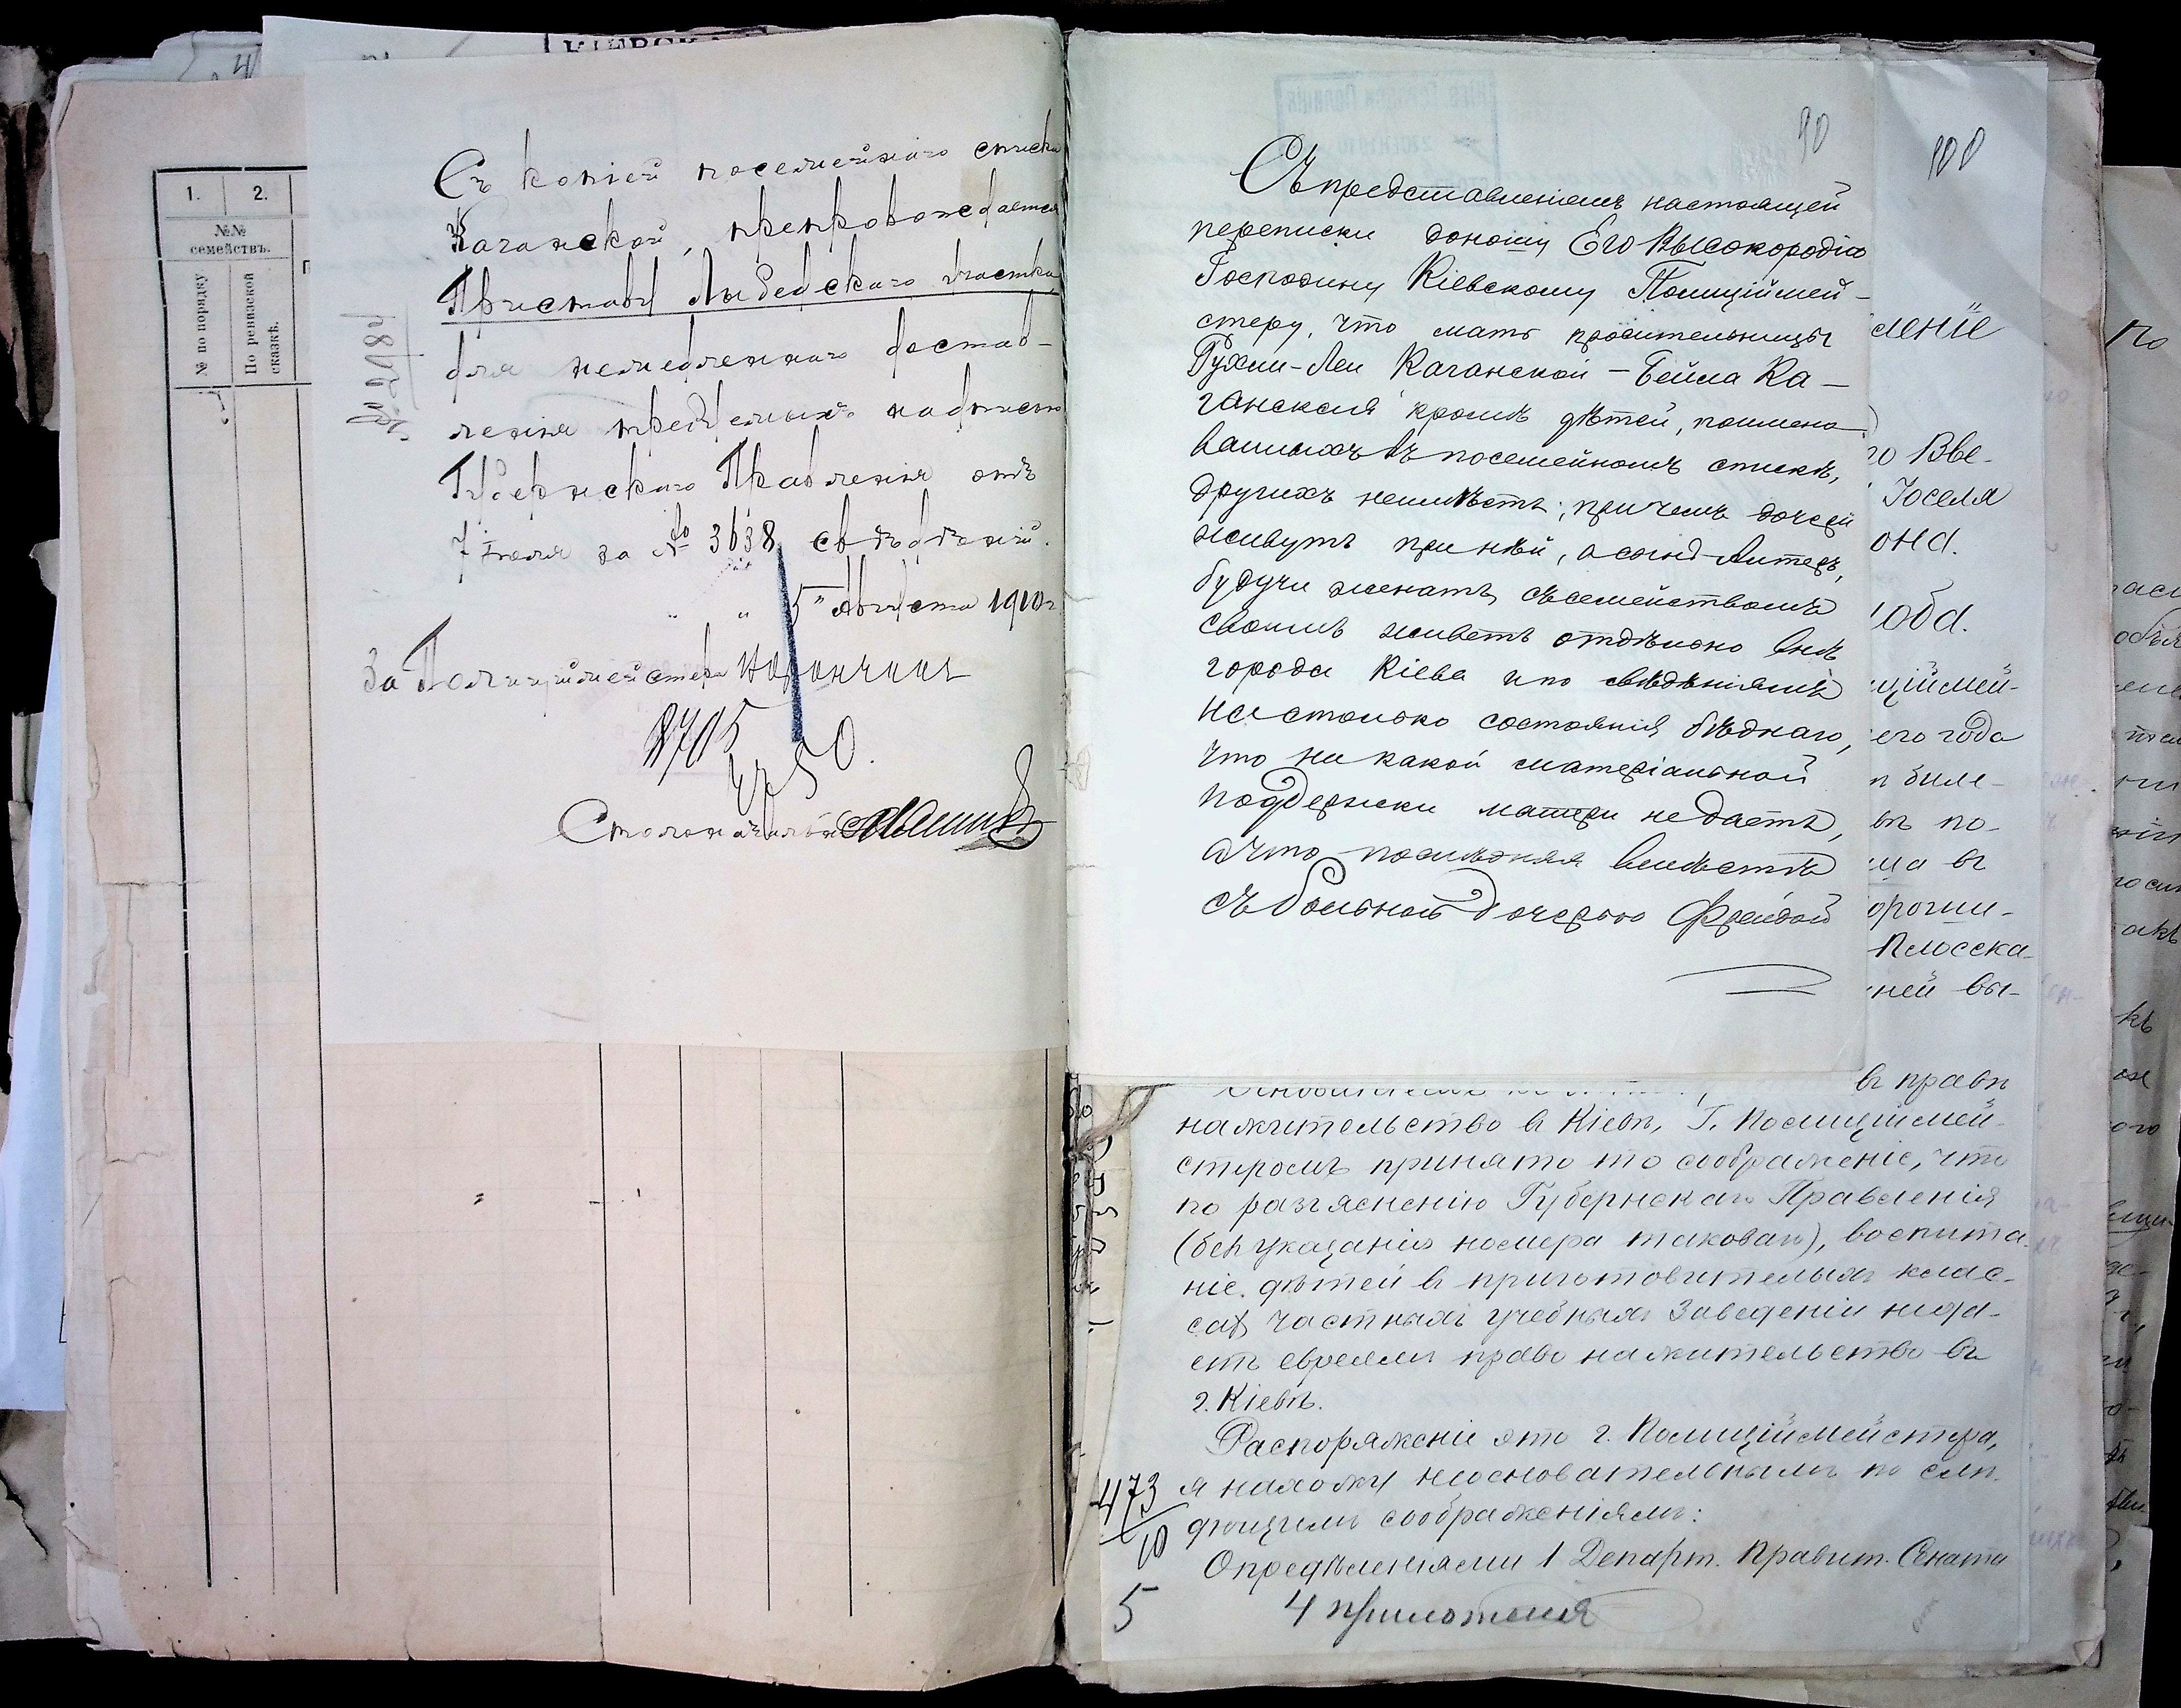 1. 2.
№№
семействъ.
№ по порядку
По ревизской
сказкѣ.
Съ копіей посемейнаго списка
Каганской, препровождается
Приставу Лыбедскаго участка
для немедленнаго достав-
ленія требуемыхъ надписью
Губернскаго Правленія отъ
7 Іюля за № 3638 свѣдѣній.
" " 5" Августа 1910 г.
За Полиціймейстера
8705
Столоначальникъ
90
100
Съ представленіемъ настоящей
переписки доношу Его Высокородію
Господину Кіевскому Полиціймей-
стеру, что мать просительницы
Рухли-Леи Каганской - Бейла Ка-
ганская кромѣ дѣтей, поимено-
ванныхъ въ посемейномъ спискѣ,
другихъ неимѣетъ; при чемъ дочери
живутъ при ней, а сынъ
будучи женатъ, съ семействомъ
своимъ живетъ отдѣльно внѣ
города Кіева и по свѣдѣніямъ
настолько состоянія бѣднаго,
что ни какой матеріальной
поддержки матери не даетъ,
а что послѣдняя вмѣстѣ
съ больной дочерью Фрейдой
леніе
го Вве-
Іоселя
она.
ціймей-
его года
въ по-
Плосска-
ней вы-
въ правѣ
на жительство въ Кіевѣ, Г. Полиціймей-
стеромъ принято то соображеніе, что
по разъясненію Губернскаго Правленія
(безъ указанія номера таковаго), воспита-
ніе дѣтей въ приготовительныхъ клас-
сахъ частныхъ учебныхъ заведеній не да-
етъ евреямъ право на жительство въ
г. Кіевѣ.
Распоряженіе это г. Полиціймейстера,
я нахожу неосновательнымъ по слѣ-
дующимъ соображеніямъ:
Опредѣленіями 1 Департ. Правит. Сената
473
10
5
4 приложенія